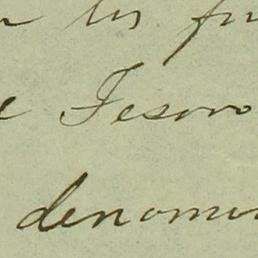 los fu
e Tesoro
denomin